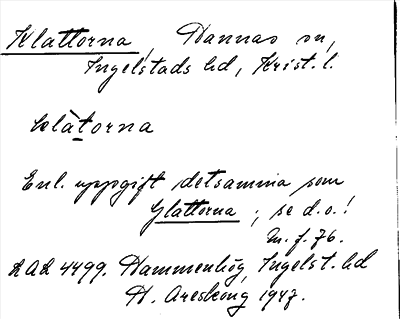 Klattorna, Hannas sn,
Ingelstads hd, Krist. l.
klàtorna
Enl. uppgift detsamma som
Glattorna; se d.o.!
M. f. 76.
LAL 4499. Hammenhög, Ingelst. hd
H. Areskong 1947.